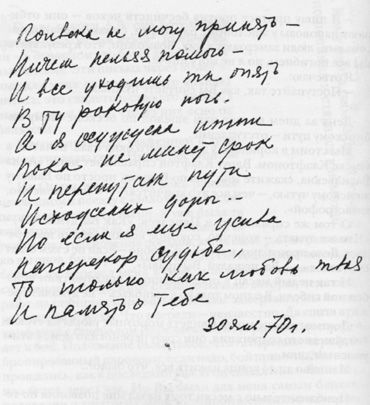 Полвека не могу принять —
Ничем нельзя помочь —
И все уходишь ты опять
В ту роковую ночь.
А я осуждена идти
Пока не минет срок
И перепутаны пути
Исхоженных дорог..
Но если я еще жива
Наперекор судьбе,
То только как любовь твоя
И память о тебе
30 янв 70 г.